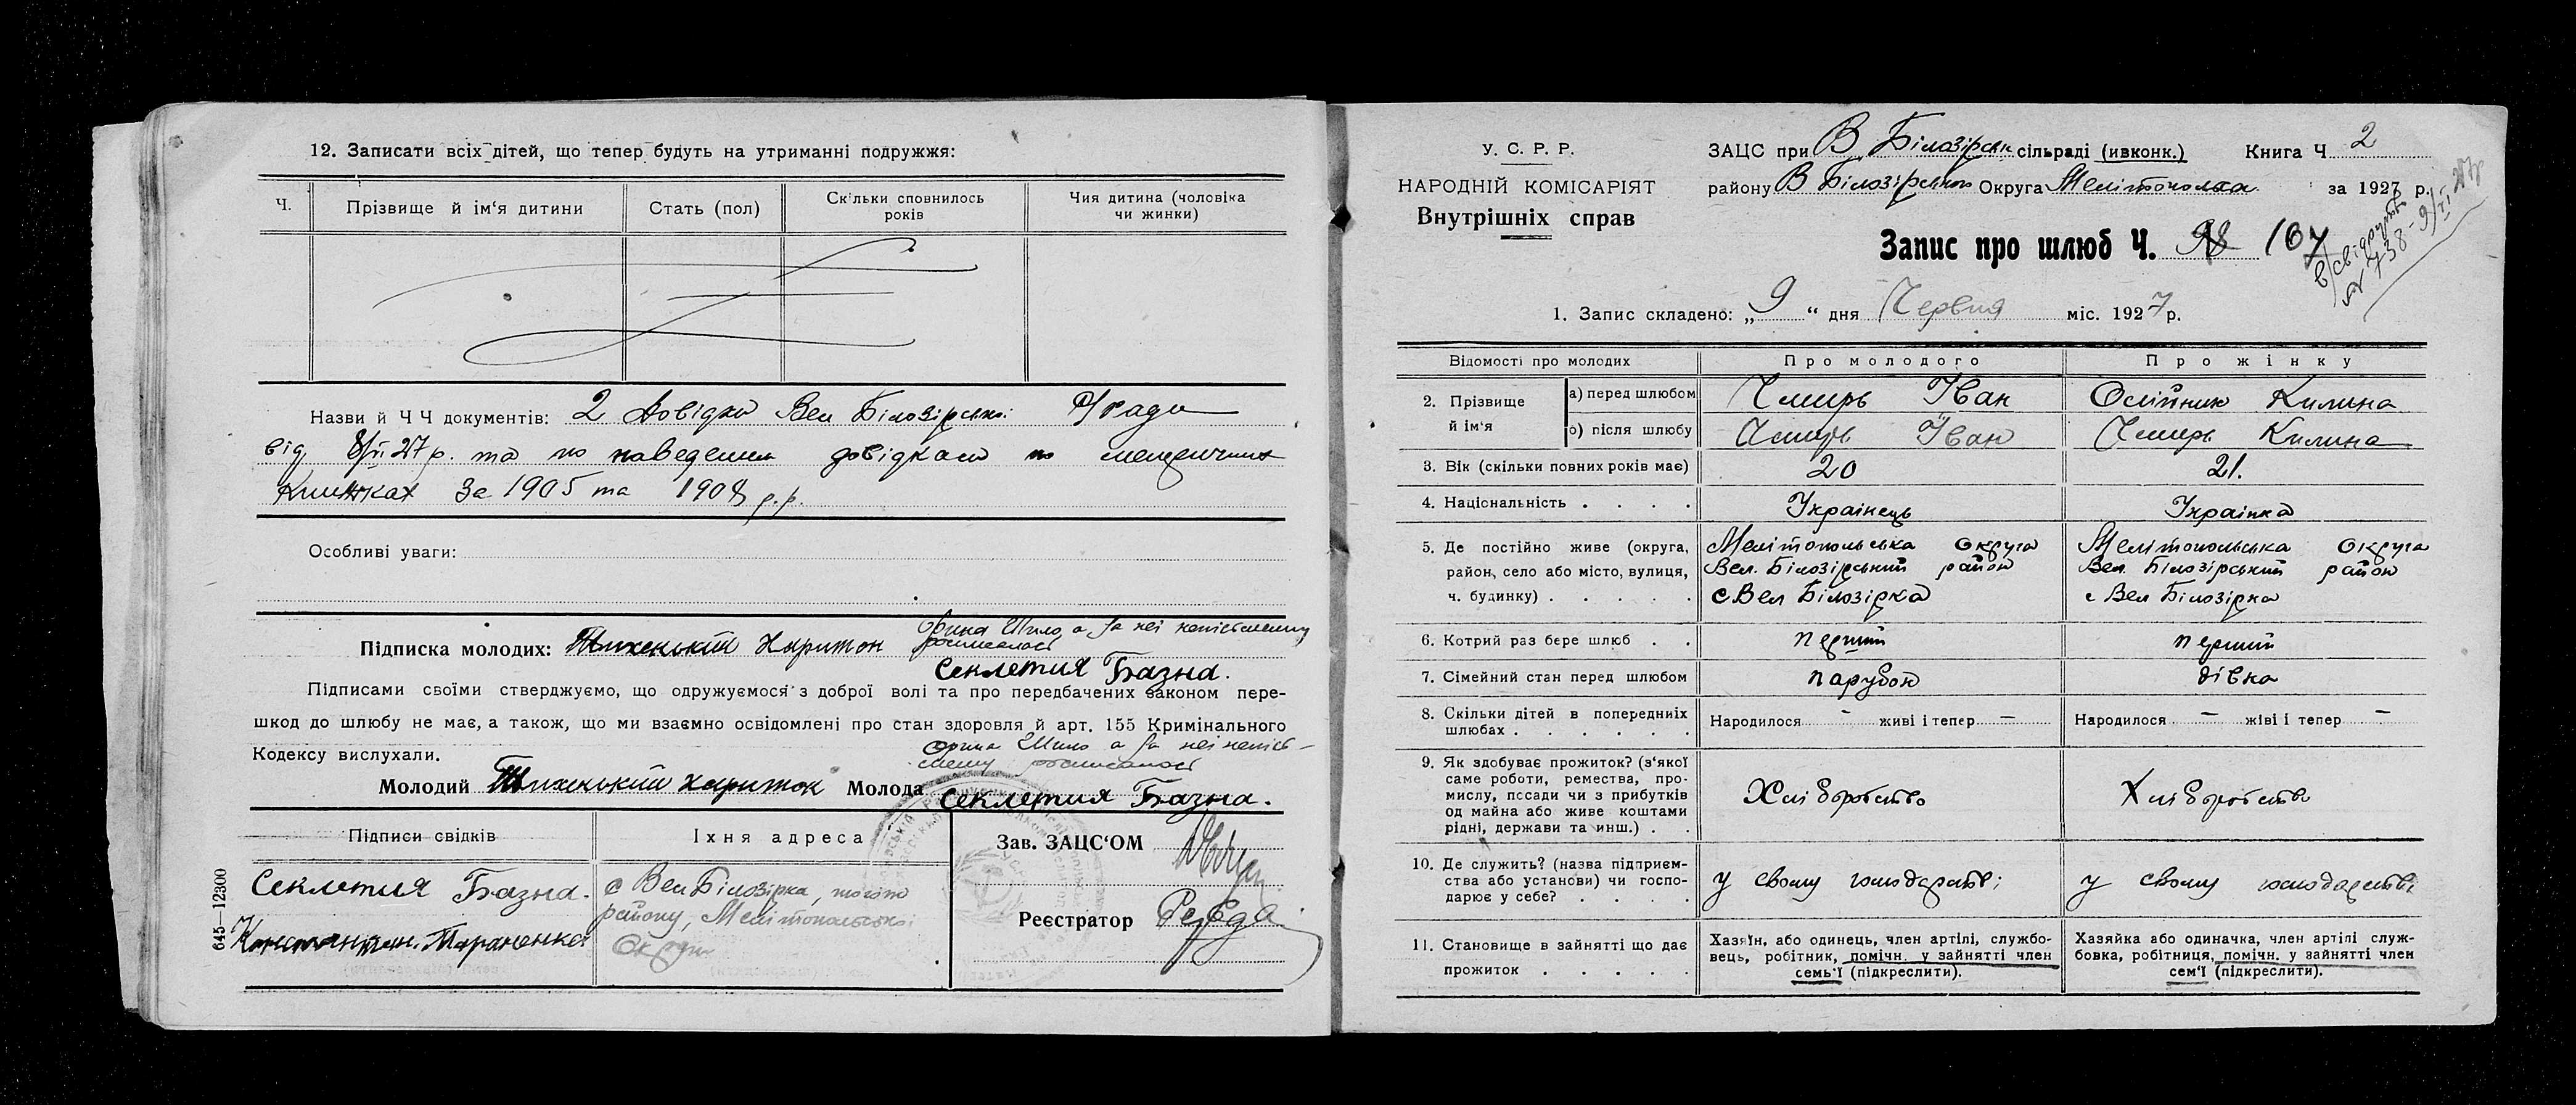 12. Записати всіх дітей, що тепер будуть на утриманні подружжя:
Ч. Прізвище й ім‘я дитини Стать (пол) Скільки сповнилось років Чия дитина (чоловіка чи жинки)
Назви й Ч Ч документів: 2 Довідки Вел Білозірської с/ради
від 8/VI 27 р. та по наведеним довідкам по
книжках за 1905 та 1908 р.р.
Особливі уваги:
Орина Шило а за неі неписьменну
росписалась
Підписка молодих: Тихенький Харитон
Секлетия Базна.
Підписами своїми стверджуємо, що одружуємося з доброї волі та про передбачених законом пере-
шкод до шлюбу не має, а також, що ми взаємно освідомлені про стан здоровля й арт. 155 Кримінального
Кодексу вислухали.
Орина Шило а за неі непись-
менну росписалась
Молодий Тихенький Харитон Молода Секлетия Базна.
Підписи свідків Їхня адреса
Секлетия Базна. с Вел Білозірка, того
району, Мелітопольської
Константин Тараненко Округи
Зав. ЗАЦС‘ОМ
Реєстратор
645—12300
У. С. Р. Р.
НАРОДНІЙ КОМІСАРІЯТ
Внутрішніх справ
ЗАЦС при В Білозірськ сільраді (ивконк.) Книга Ч 2
району В Білозірської Округа Мелітопольска за 1927 р.
Запис про шлюб Ч. 98 107
в/свідоцтво
№ 738 - 9/VI 27р
1. Запис складено: „ 9 “ дня Червня міс. 1927 р.
Відомості про молодих Про молодого Про жінку
2. Прізвище й ім‘я
а) перед шлюбом Чмирь Іван Олійник Килина
б) після шлюбу Чмирь Іван Чмирь Килина
3. Вік (скільки повних років має) 20 21.
4. Національність Українець Українка
5. Де постійно живе (округа, Мелітопольська Округа Мелітопольська Округа
район, село або місто, вулиця, Вел. Білозірський район Вел. Білозірський район
ч. будинку) с Вел Білозірка с Вел Білозірка
6. Котрий раз бере шлюб перший перший
7. Сімейний стан перед шлюбом парубок дівка
8. Скільки дітей в попередніх шлюбах Народилося — живі і тепер — Народилося — живі і тепер —
9. Як здобуває прожиток? (з‘якої
саме роботи, ремества, про-
мислу, посади чи з прибутків
од майна або живе коштами
рідні, держави та инш.) Хліборобство Хліборобство
10. Де служить? (назва підприєм-
ства або установи) чи госпо-
дарює у себе? у свому господарстві у свому господарстві
11. Становище в зайнятті що дає
прожиток
Хазяїн, або одинець, член артілі, службо-
вець, робітник, помічн. у зайнятті член
семь‘ї (підкреслити).
Хазяйка або одиначка, член артілі служ-
бовка, робітниця, помічн. у зайнятті член
сем‘ї (підкреслити).